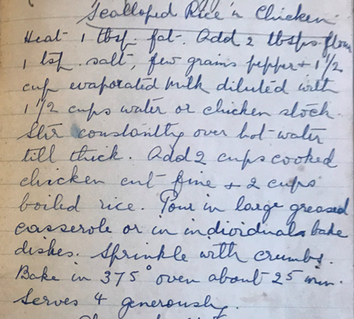 Scalloped Rice 'n Chicken
Heat 1 tbsp fat. Add 2 tbsps flour
1 tsp. salt, few grains pepper + 1 1/2
cup evaporated milk diluted with
1 1/2 cups water or chicken stock.
Stir constantly over hot water
till thick. Add 2 cups cooked
chicken cut fine + 2 cups
boiled rice. Pour in large greased
casserole or in individual bake
dishes. Sprinkle with crumbs.
Bake in 375° oven about 25 min.
Serves 4 generously.